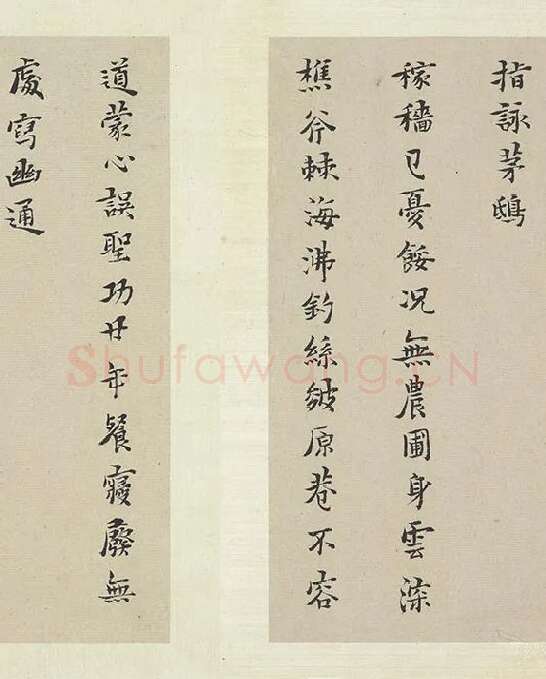 指詠茅鴟
稼穡已憂餒况無農圃身雲深
樵斧棘海沸釣絲皴原巷不容
道蒙心誤聖功廿年餐寢廢無
處寫幽通
Shufawang.CN